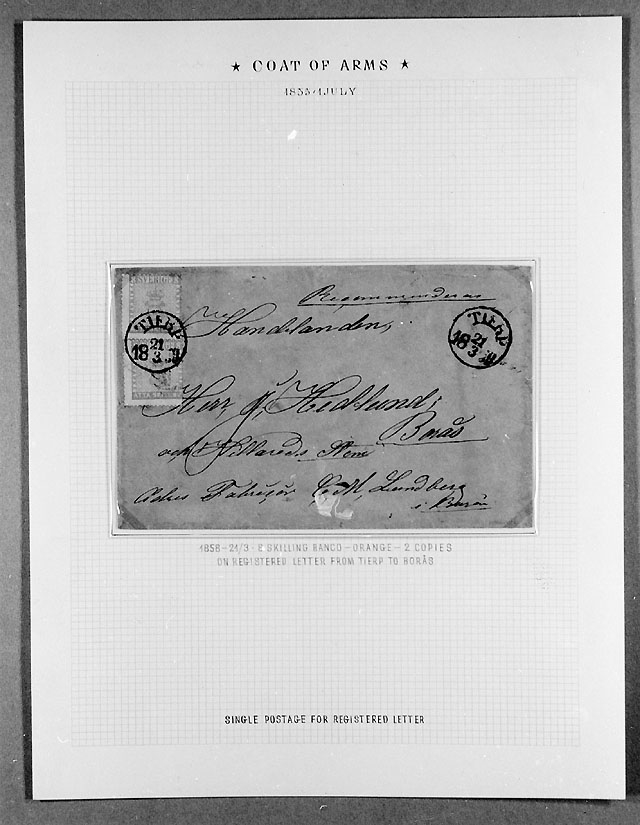 ★ COAT OF ARMS ★
1855-1 JULY
SVERIGE
Recommenderas
TIERP
21
18 3
TIERP
21
18 3
Handlanden,
Herr Hedlund
Borås
och
Adres Lundberg
i Borås
1858-21/3-8 SKILLING BANCO-ORANGE-2 COPIES
ON REGISTERED LETTER FROM TIERP TO BORÅS
SINGLE POSTAGE FOR REGISTERED LETTER